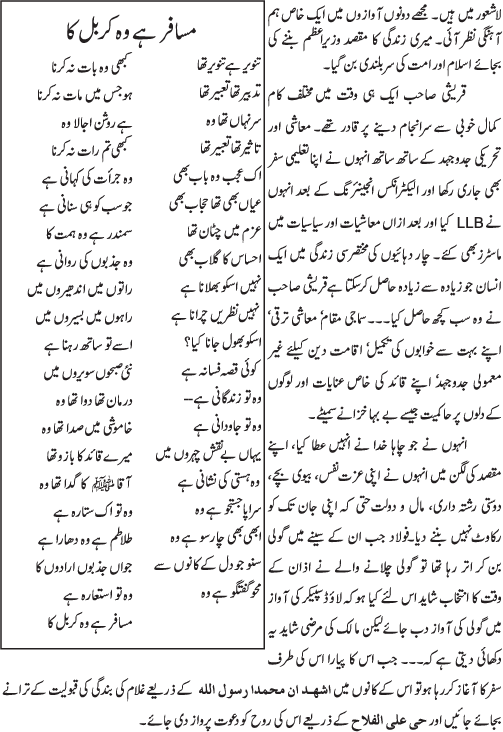 لاشعور میں ہیں۔ مجھے دونوں آوازوں میں ایک خاص ہم
آہنگی نظر آئی۔ میری زندگی کا مقصد وزیراعظم بننے کی
بجائے اسلام اور امت کی سربلندی بن گیا۔
قریشی صاحب ایک ہی وقت میں مختلف کام
کمال خوبی سے سرانجام دینے پر قادر تھے۔ معاشی اور
تحریکی جدوجہد کے ساتھ ساتھ انہوں نے اپنا تعلیمی سفر
بھی جاری رکھا اور الیکٹرانکس انجینئرنگ کے بعد انہوں
نے LLB کیا اور بعد ازاں معاشیات اور سیاسیات میں
ماسٹرز بھی کئے۔ چار دہائیوں کی مختصر سی زندگی میں ایک
انسان جو زیادہ سے زیادہ حاصل کرسکتا ہے قریشی صاحب
نے وہ سب کچھ حاصل کیا۔۔۔ سماجی مقام' معاشی ترقی'
اپنے بہت سے خوابوں کی تکمیل' اقامت دین کیلئے غیر
معمولی جدوجہد' اپنے قائد کی خاص عنایات اور لوگوں
کے دلوں پر حاکمیت جیسے بے بہا خزانے سمیٹے۔
انہوں نے جو چاہا خدا نے انہیں عطا کیا، اپنے
مقصد کی لگن میں انہوں نے اپنی عزت نفس، بیوی بچے،
دوستی رشتہ داری، مال و دولت حتی کہ اپنی جان تک کو
رکاوٹ نہیں بننے دیا۔ فولاد جب ان کے سینے میں گولی
بن کر اتر رہا تھا تو گولی چلانے والے نے اذان کے
وقت کا انتخاب شاید اس لئے کیا ہو کہ لاؤڈ سپیکر کی آواز
میں گولی کی آواز دب جائے لیکن مالک کی مرضی شاید یہ
دکھائی دیتی ہے کہ۔۔۔ جب اس کا پیارا اس کی طرف
سفر کا آغاز کررہا ہو تو اس کے کانوں میں اشهد ان محمدا رسول الله کے ذریعے غلام کی بندگی کی قبولیت کے ترانے
بجائے جائیں اور حی علی الفلاح کے ذریعے اس کی روح کو دعوت پرواز دی جائے۔
مسافر ہے وہ کربل کا
تنویر ہے تنویر تھا
تدبیر تھا تعبیر تھا
سر نہاں تھا وہ
تاثیر تھا تعبیر تھا
اک عجب وہ باب بھی
عیاں بھی تھا حجاب بھی
عزم میں چٹان تھا
احساس کا گلاب بھی
نہیں اسکو بھلانا ہے
نہیں نظریں چرانا ہے
اسکو بھول جانا کیا؟
کوئی قصہ فسانہ ہے
وہ تو زندگانی ہے–
وہ تو جاودانی ہے
یہاں بے نقش چہروں میں
وہ ہستی کی نشانی ہے
سراپا جستجو ہے وہ
ابھی بھی چار سو ہے وہ
سنو جو دل کے کانوں سے
محو گفتگو ہے وہ
کبھی وہ بات نہ کرنا
ہو جس میں مات نہ کرنا
ہے روشن اجالا وہ
کبھی تم رات نہ کرنا
وہ جرأت کی کہانی ہے
جو سب کو ہی سنانی ہے
سمندر ہے وہ ہمت کا
وہ جذبوں کی روانی ہے
راتوں میں اندھیروں میں
راہوں میں بسیروں میں
اسے تو ساتھ رہنا ہے
نئی صبحوں سویروں میں
درمان تھا دوا تھا وہ
خاموشی میں صدا تھا وہ
میرے قائد کا بازو تھا
آقا ﷺ کا گدا تھا وہ
وہ تو اک ستارہ ہے
طلاطم ہے وہ دھارا ہے
جواں جذبوں ارادوں کا
وہ تو استعارہ ہے
مسافر ہے وہ کربل کا